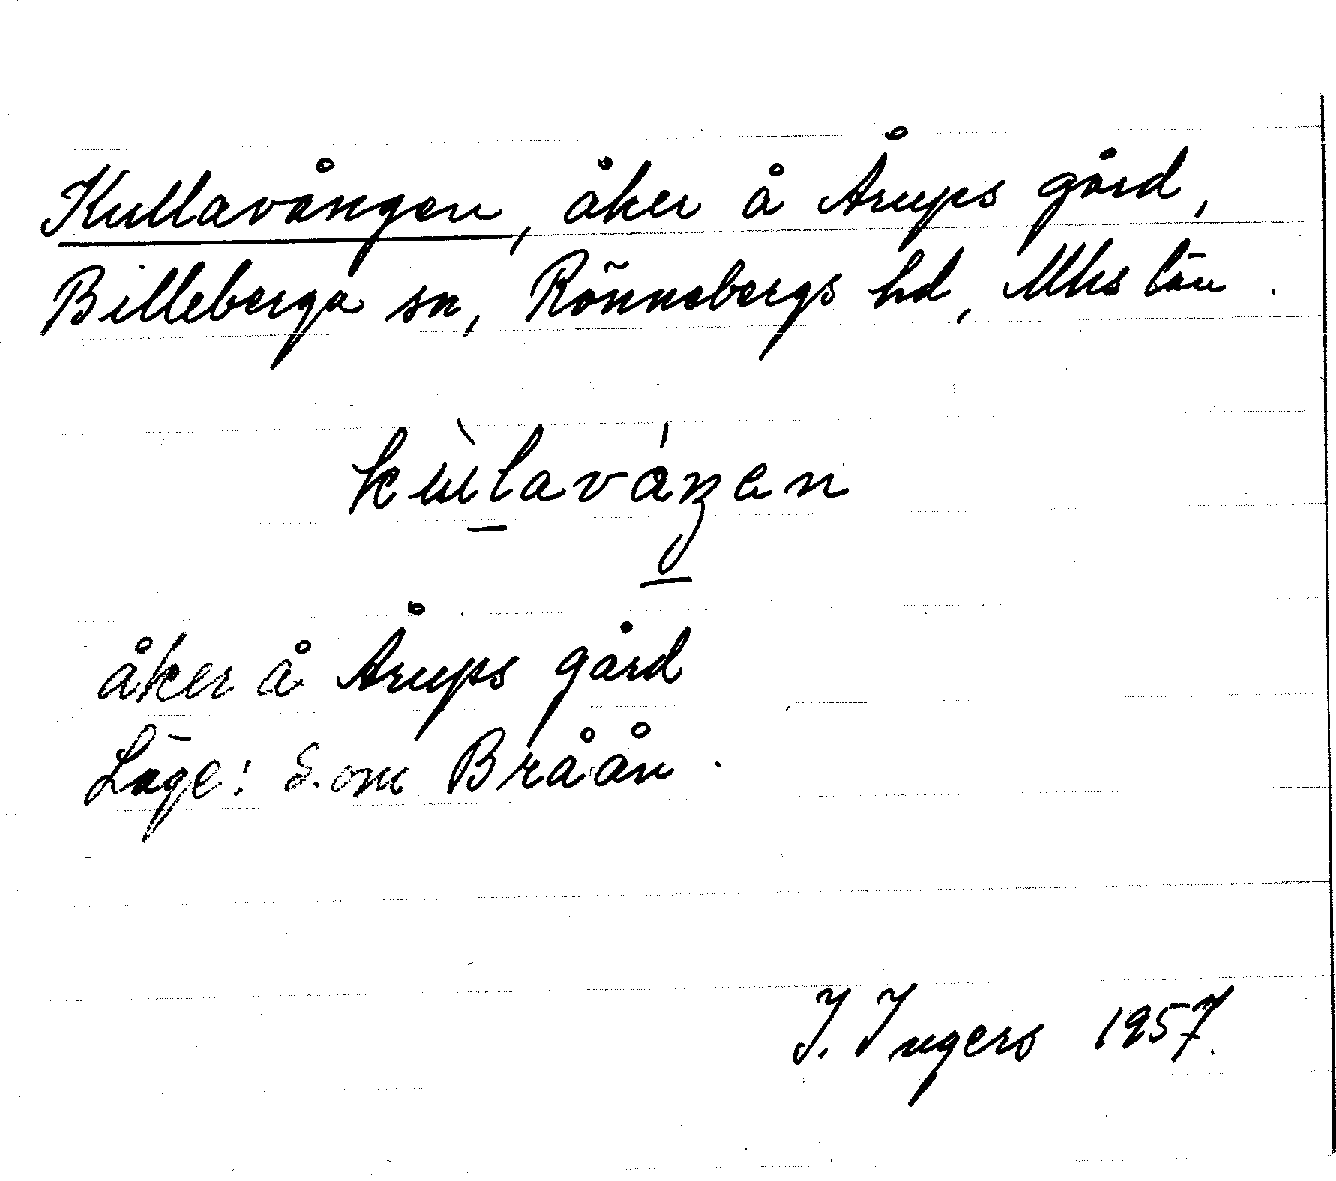 Kullavången, åker å Årups gård,
Billeberga sn, Rönnebergs hd, Mhs län.
åker å Årups gård
Läge: S. om Bråån.
I. Ingers 1957.